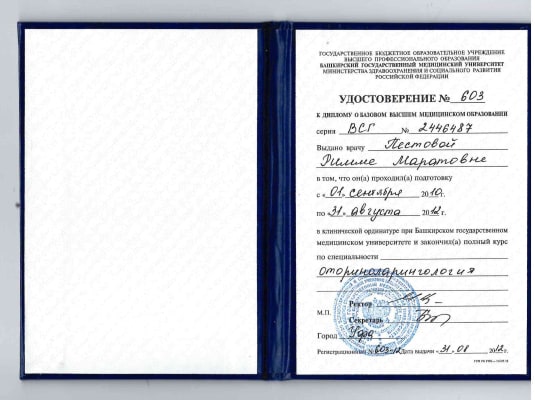 ГОСУДАРСТВЕННОЕ БЮДЖЕТНОЕ ОБРАЗОВАТЕЛЬНОЕ УЧРЕЖДЕНИЕ
ВЫСШЕГО ПРОФЕССИОНАЛЬНОГО ОБРАЗОВАНИЯ
БАШКИРСКИЙ ГОСУДАРСТВЕННЫЙ МЕДИЦИНСКИЙ УНИВЕРСИТЕТ
МИНИСТЕРСТВА ЗДРАВООХРАНЕНИЯ И СОЦИАЛЬНОГО РАЗВИТИЯ
РОССИЙСКОЙ ФЕДЕРАЦИИ
УДОСТОВЕРЕНИЕ № 603
К ДИПЛОМУ О БАЗОВОМ ВЫСШЕМ МЕДИЦИНСКОМ ОБРАЗОВАНИИ
серия ВСГ № 2446487
Выдано врачу Пестовой
Римме Маратовне
в том, что он(а) проходил(а) подготовку
с «01» сентября 2010г.
по «31» августа 2012г.
в клинической ординатуре при Башкирском государственном
медицинском университете и закончил(а) полный курс
по специальности
оториноларингология
Ректор
М.П.
Секретарь
Город Уфа
Регистрационный № 603-12 Дата выдачи «31.08 2012г.